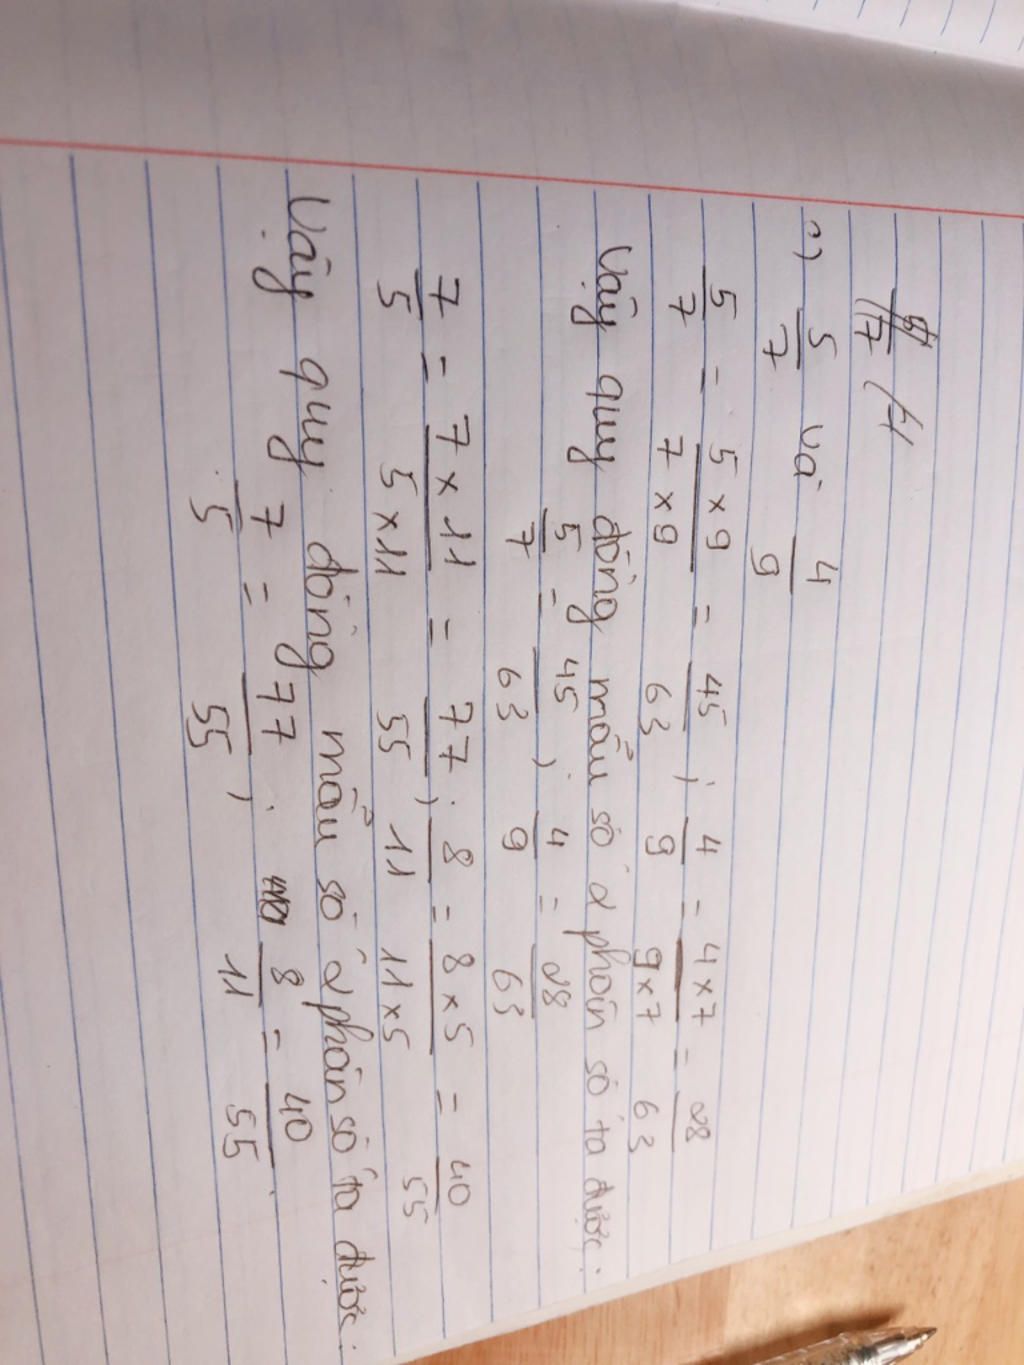 a) 5/7 và 4/9
5/7 = 5 x 9/7 x 9 = 45/63 ; 4/9 = 4 x 7/9 x 7 = 28/63
Vậy quy đồng mẫu số 2 phân số ta được:
5/7 = 45/63 ; 4/9 = 28/63
7/5 = 7 x 11/5 x 11 = 77/55 ; 8/11 = 8 x 5/11 x 5 = 40/55
Vậy quy đồng mẫu số 2 phân số ta được:
7/5 = 77/55 ; 8/11 = 40/55.